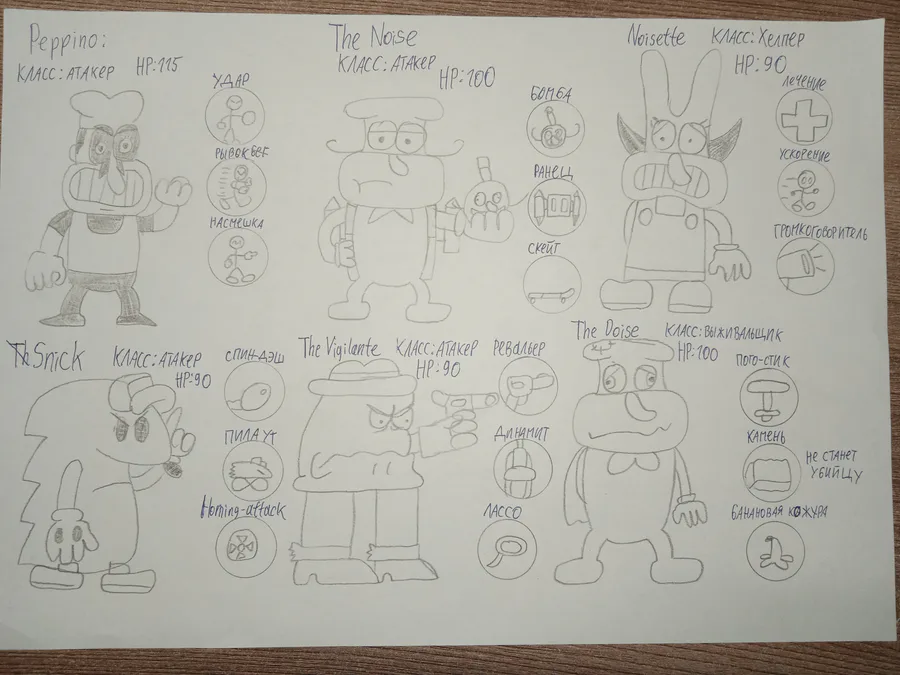 Peppino:
КЛАСС: АТАКЕР
HP: 115
УДАР
РЫВОК БЕГ
НАСМЕШКА
The Noise
КЛАСС: АТАКЕР
HP: 100
БОМБА
РАНЕЦ
СКЕЙТ
Noisette
КЛАСС: ХЕЛПЕР
HP: 90
ЛЕЧЕНИЕ
УСКОРЕНИЕ
ГРОМКОГОВОРИТЕЛЬ
Snick
КЛАСС: АТАКЕР
HP: 90
СПИН-ДЭШ
Homing-attack
The Vigilante
КЛАСС: АТАКЕР
HP: 90
РЕВАЛЬЕР
ДИНАМИТ
ЛАССО
The Doise
КЛАСС: ВЫЖИВАЛЬЩИК
HP: 100
ПОГО-СТИК
КАМЕНЬ
НЕ СТАНЕТ
УБИЙЦУ
БАНАНОВАЯ КОЖУРА